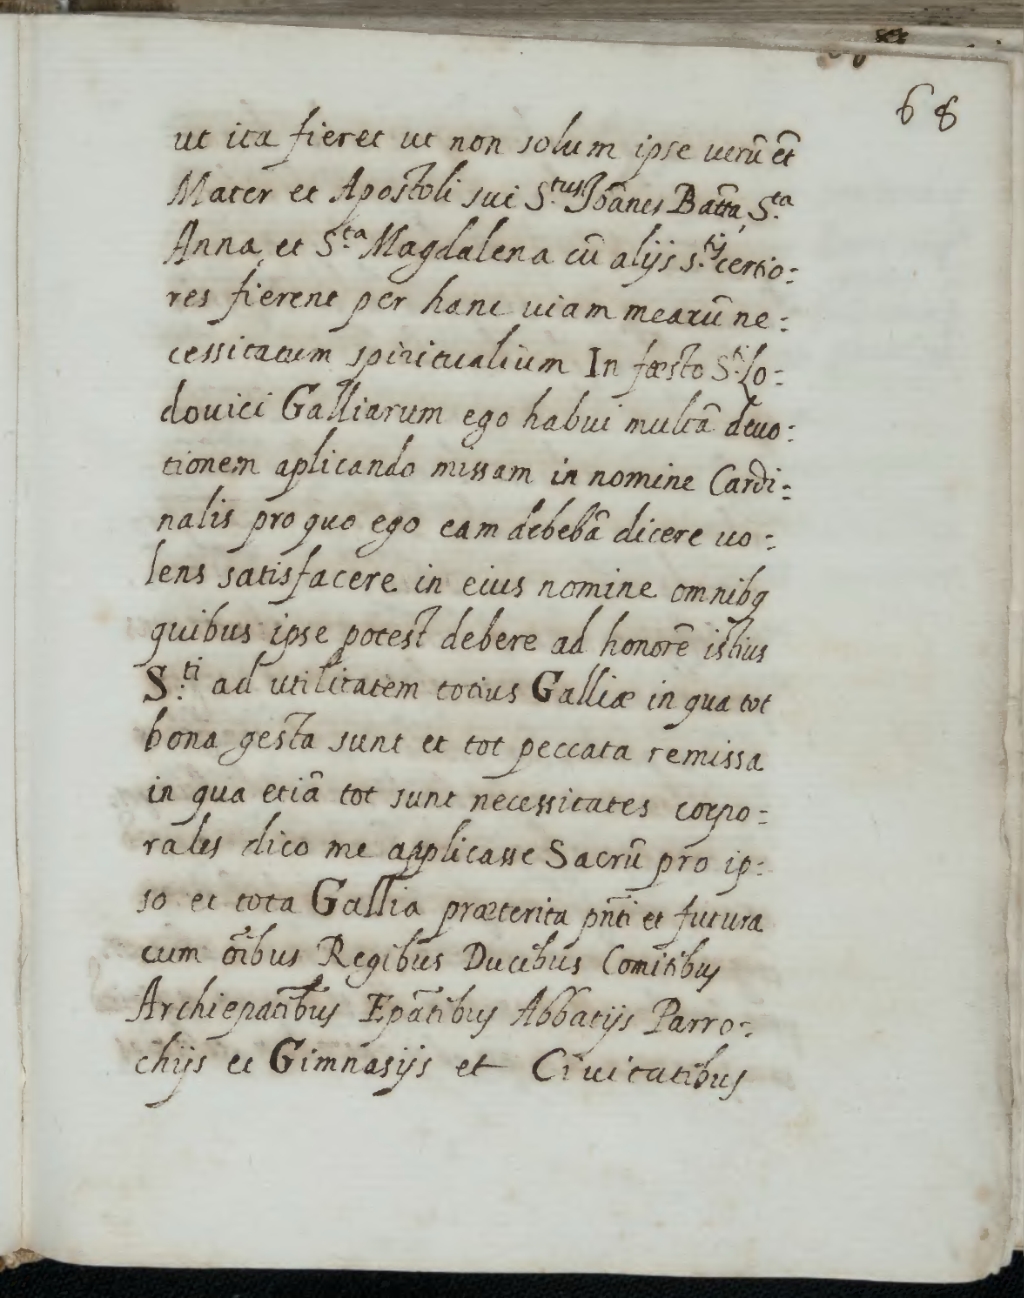 68
ut ita fieret ut non solum ipse uerũ et̃
Mater et Apostoli sui S.tus Joãnes Batt̃a, S.ta
Anna, et S.ta Magdalena cũ alijs s.tij certio:
res fierent per hanc uiam mearũ ne:
cessitatum spiritualium In fæsto S.ti Lo:
douici Galliarum ego habui multã deuo:
tionem aplicando missam in nomine Cardi:
nalis pro quo ego eam debebã dicere uo:
lens satisfacere in eius nomine omnibq
quibus ipse potest debere ad honorẽ istius
S.ti ad utilitatem totius Galliæ in qua tot
bona gesta sunt et tot peccata remissa
in qua etiã tot sunt necessitates corpo:
rales dico me applicasse Sacrũ pro ip:
so et tota Gallia præterita pñti et futura
cum õibus Regibus Ducibus Comitibus
Archiepat̃ibus Epãtibus Abbatijs Parro:
chijs et Gimnasijs et Ciuitatibus